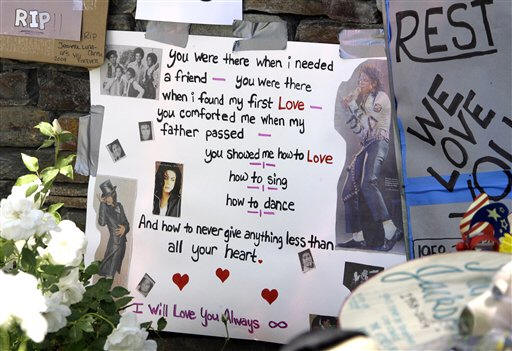 RIP
RIP
2009
REST
WE
LOVE
YOU
You were there when i needed
a friend — you were there
when i found my first Love —
you comforted me when my
father passed —
you showed me how to Love
how to sing
how to dance
And how to never give anything less than
all your heart.
I Will Love You Always ∞
1958